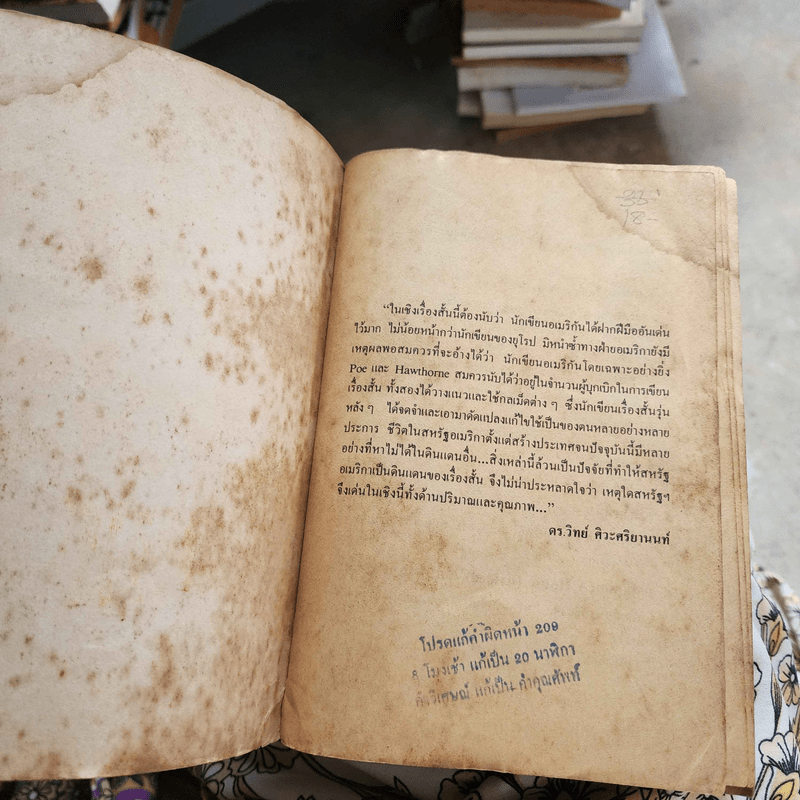 35-
18-
"ในเชิงเรื่องสั้นนี้ต้องนับว่า นักเขียนอเมริกันได้ฝากฝีมืออันเด่น
ไว้มาก ไม่น้อยหน้ากว่านักเขียนของยุโรป มิหนำซ้ำทางฝ่ายอเมริกายังมี
เหตุผลพอสมควรที่จะอ้างได้ว่า นักเขียนอเมริกันโดยเฉพาะอย่างยิ่ง
Poe และ Hawthorne สมควรนับได้ว่าอยู่ในจำนวนผู้บุกเบิกในการเขียน
เรื่องสั้น ทั้งสองได้วางแนวและใช้กลเม็ดต่าง ๆ ซึ่งนักเขียนเรื่องสั้นรุ่น
หลัง ๆ ได้จดจำและเอามาดัดแปลงแก้ไขใช้เป็นของตนหลายอย่างหลาย
ประการ ชีวิตในสหรัฐอเมริกาตั้งแต่สร้างประเทศจนปัจจุบันนี้มีหลาย
อย่างที่หาไม่ได้ในดินแดนอื่น...สิ่งเหล่านี้ล้วนเป็นปัจจัยที่ทำให้สหรัฐ
อเมริกาเป็นดินแดนของเรื่องสั้น จึงไม่น่าประหลาดใจว่า เหตุใดสหรัฐฯ
จึงเด่นในเชิงนี้ทั้งด้านปริมาณและคุณภาพ..."
ดร.วิทย์ ศิวะศริยานนท์
โปรดแก้คำผิดหน้า 209
8 โมงเช้า แก้เป็น 20 นาฬิกา
คำวิเศษณ์ แก้เป็น คำคุณศัพท์